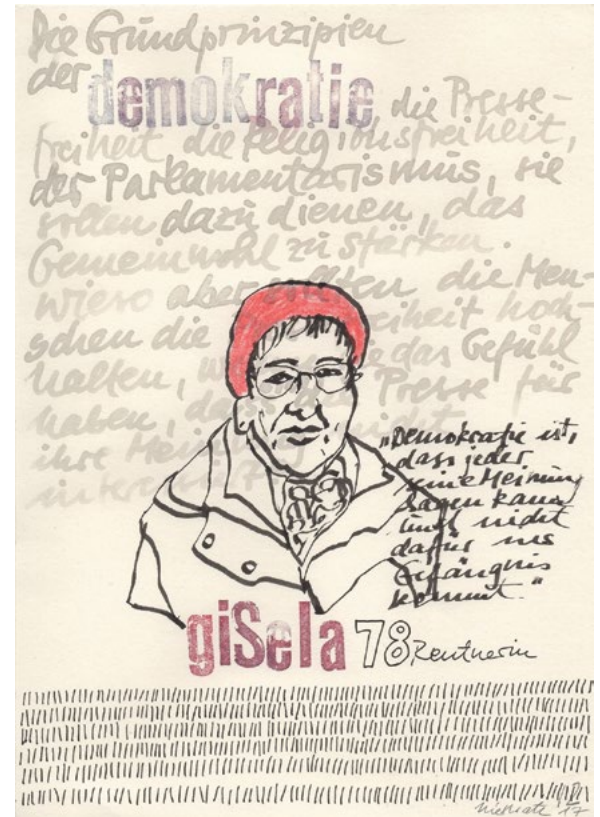 Die Grundprinzipien
der demokratie die Presse-
freiheit die Religionsfreiheit,
der Parlamentarismus, sie
sollen dazu dienen, das
Gemeinwohl zu stärken.
wieso aber sollten die Men-
schen die freiheit hoch-
halten, das Gefühl
haben, Presse für
ihre nicht
„Demokratie ist,
dass jeder
seine Meinung
sagen kann
und nicht
dafür ins
Gefängnis
kommt."
giSela 78 Rentnerin
'17